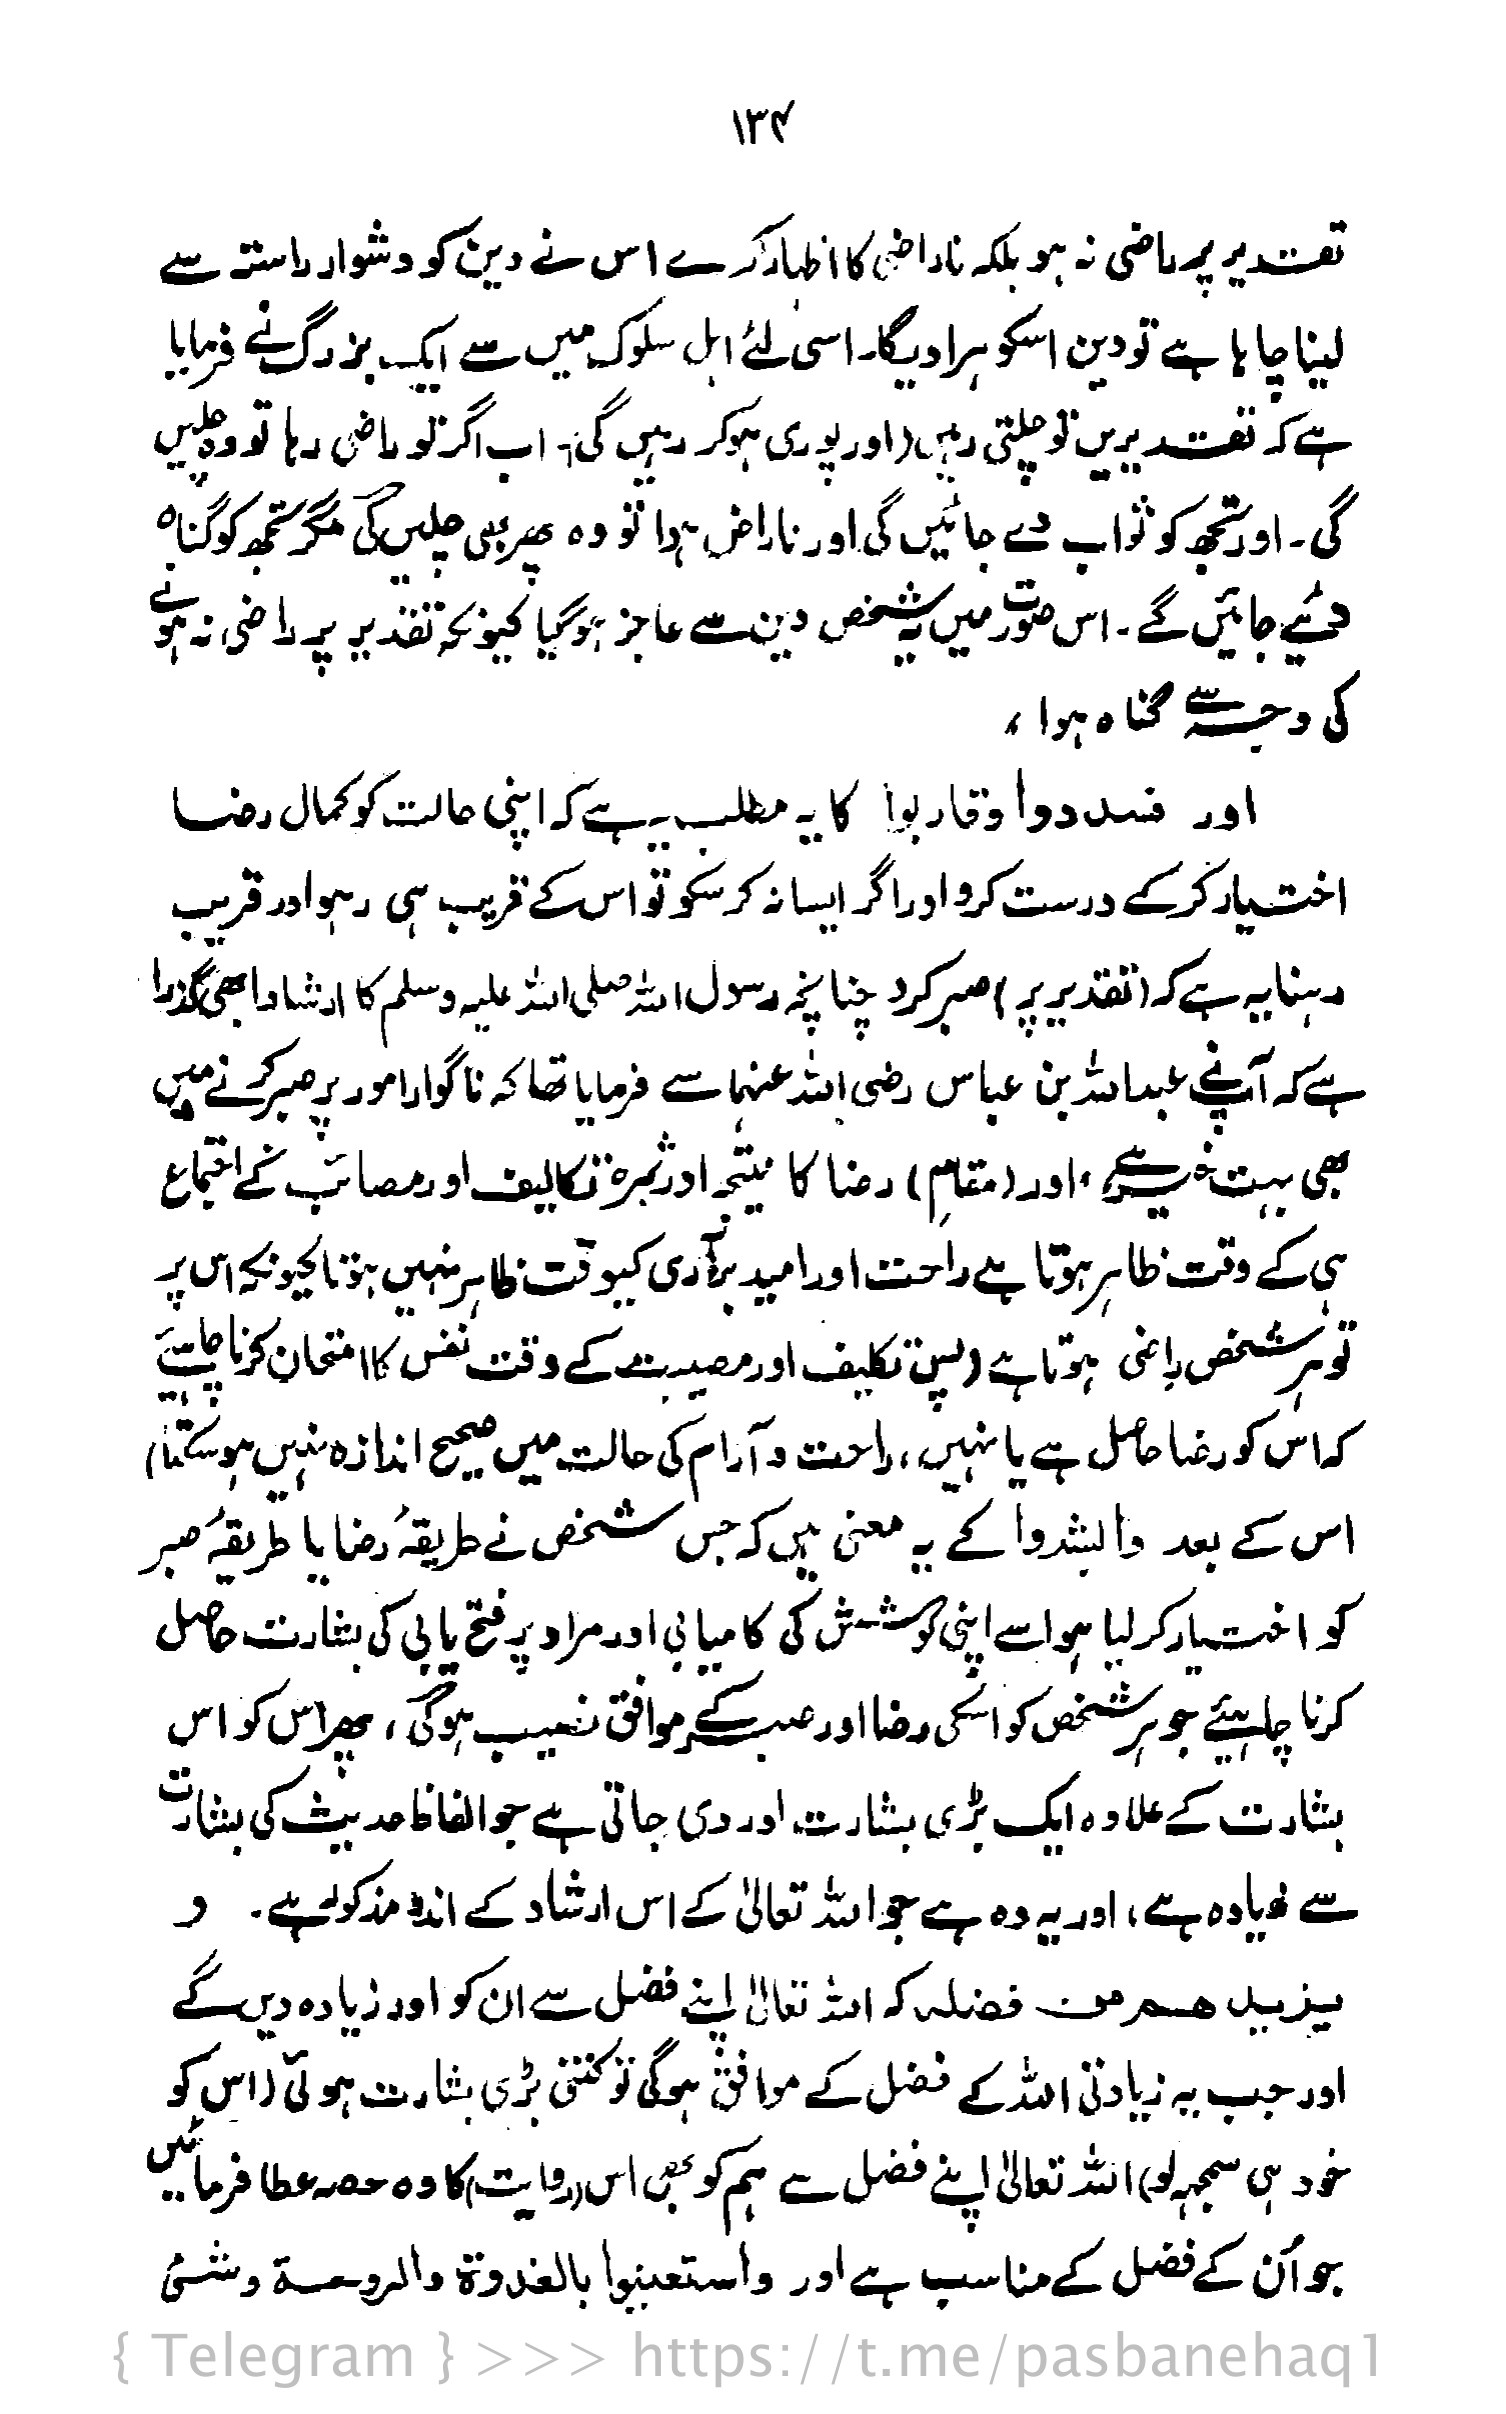 ۱۳۴
تقدیر پر راضی نہ ہو بلکہ ناراضی کا اظہار کرے اس نے دین کو دشوار راستہ سے
لینا چاہا ہے تو دین اسکو ہرا دیگا۔ اسی لئے اہل سلوک میں سے ایک بزرگ نے فرمایا
ہے کہ تقدیریں تو چلتی رہیں (اور پوری ہو کر رہیں گی) اب اگر تو راضی رہا تو وہ چلیں
گی۔ اور تجھ کو ثواب دے جائیں گی اور ناراض ہوا تو وہ پھر بھی چلیں گی مگر تجھ کو گناہ
دئیے جائیں گے۔ اس صورت میں یہ شخص دین سے عاجز ہو گیا کیونکہ تقدیر پر راضی نہ ہونے
کی وجہ سے گناہ ہوا ،
اور فسددوا وقاربوا کا یہ مطلب ہے کہ اپنی حالت کو کمال رضا
اختیار کر کے درست کرو اور اگر ایسا نہ کر سکو تو اس کے قریب ہی رہو اور قریب
رہنا یہ ہے کہ (تقدیر پر) صبر کرو چنانچہ رسول اللہ صلی اللہ علیہ وسلم کا ارشاد ابھی گذرا
ہے کہ آپنے عبداللہ بن عباس رضی اللہ عنہما سے فرمایا تھا کہ ناگوار امور پر صبر کرنے میں
بھی بہت خیر ہے، اور (مقامِ) رضا کا نتیجہ اور ثمرہ تکالیف اور مصائب کے اجتماع
ہی کے وقت ظاہر ہوتا ہے راحت اور امید برآری کیوقت ظاہر نہیں ہوتا کیونکہ اس پر
تو ہر شخص راضی ہوتا ہے (پس تکلیف اور مصیبت کے وقت نفس کا امتحان کرنا چاہیئے
کہ اس کو رضا حاصل ہے یا نہیں، راحت و آرام کی حالت میں صحیح اندازہ نہیں ہو سکتا)
اس کے بعد وابشروا کے یہ معنی ہیں کہ جس شخص نے طریقۂ رضا یا طریقۂ صبر
کو اختیار کر لیا ہو اسے اپنی کوشش کی کامیابی اور مراد پر فتح یابی کی بشارت حاصل
کرنا چاہیئے جو ہر شخص کو اسکی رضا اور صبر کے موافق نصیب ہوگی، پھر اس کو اس
بشارت کے علاوہ ایک بڑی بشارت اور دی جاتی ہے جو الفاظ حدیث کی بشارت
سے زیادہ ہے، اور یہ وہ ہے جو اللہ تعالیٰ کے اس ارشاد کے اندر مذکور ہے۔ و
یزیدھم من فضلہ کہ اللہ تعالیٰ اپنے فضل سے ان کو اور زیادہ دیں گے
اور جب یہ زیادتی اللہ کے فضل کے موافق ہوگی تو کتنی بڑی بشارت ہوئی (اس کو
خود ہی سمجھ لو) اللہ تعالیٰ اپنے فضل سے ہم کو بھی اس (روایت) کا وہ حصہ عطا فرمائیں
جو اُن کے فضل کے مناسب ہے اور واستعینوا بالغدوة والروحة وشئ
{ Telegram } >>> https://t.me/pasbanehaq1